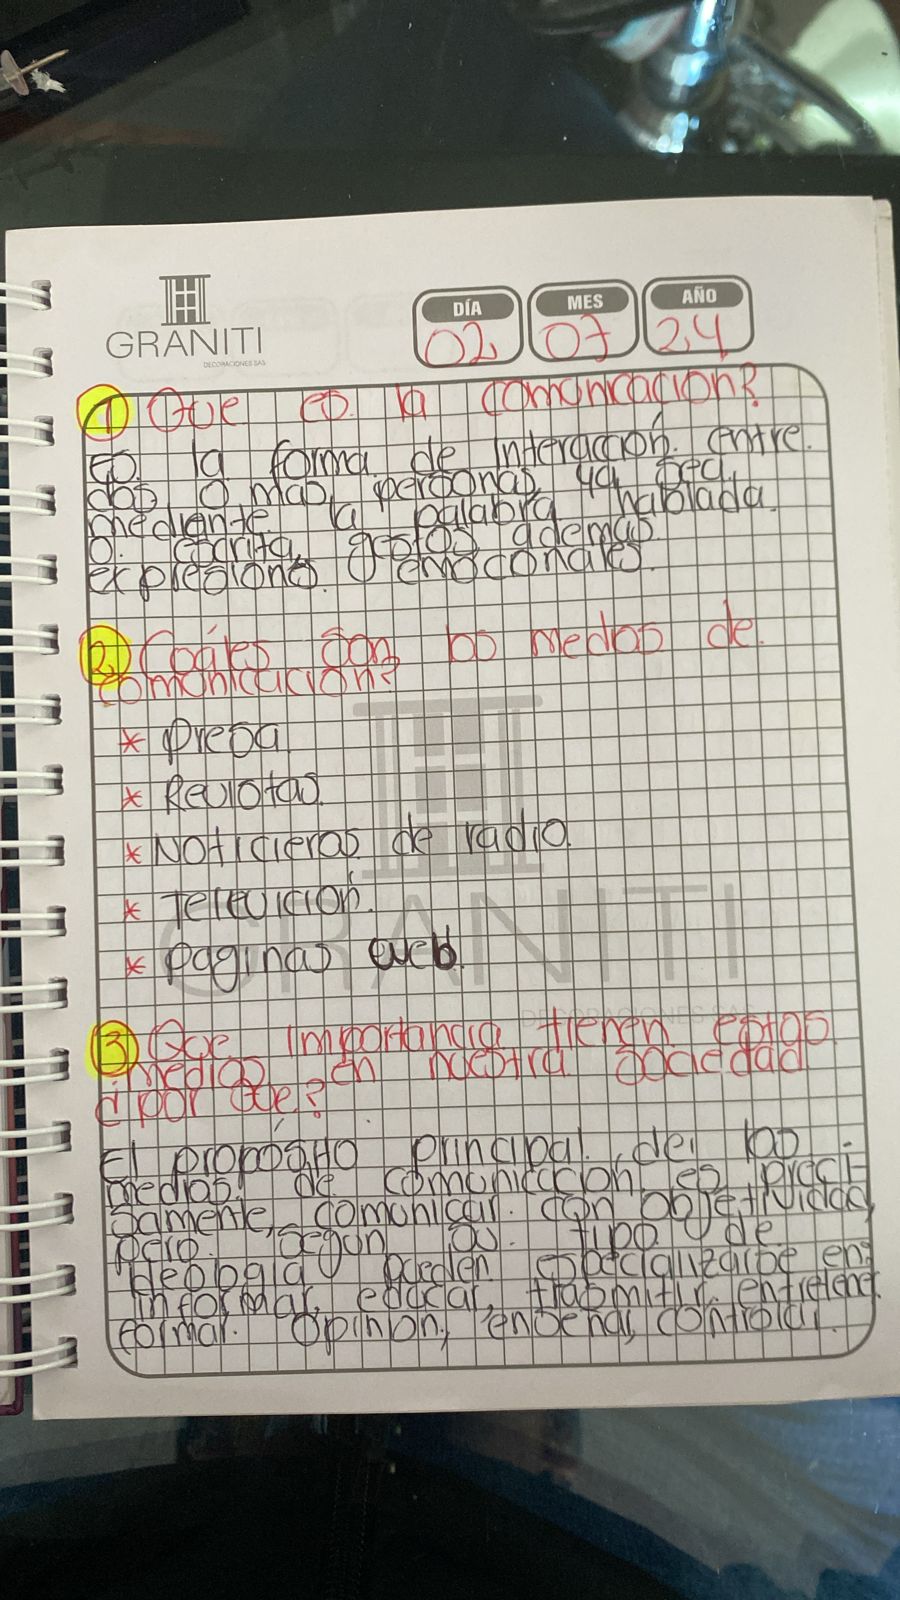 GRANITI
DECORACIONES SAS
DÍA MES AÑO
02 07 24
1 Que es la comunicacion?
es la forma de interacción entre
dos o mas personas, ya sea,
mediante la palabra hablada
o escrita, gestos ademas
expresiones emocionales.
2, Cuáles son los medios de
comunicacion?
* Presa
* Revistas
* Noticieros de radio
* Televicion
* Paginas web
GRANITI
DECORACIONES SAS
3 Que importancia tienen estos
medios en nuestra sociedad
¿por que?
El propósito principal de los
medios de comunicacion es preci-
samente, comunicar con objetividad,
pero segun su tipo de
ideologia pueden especializarse en:
informar, educar, trasmitir, entretener
formar opinion, enseñar, controlar.